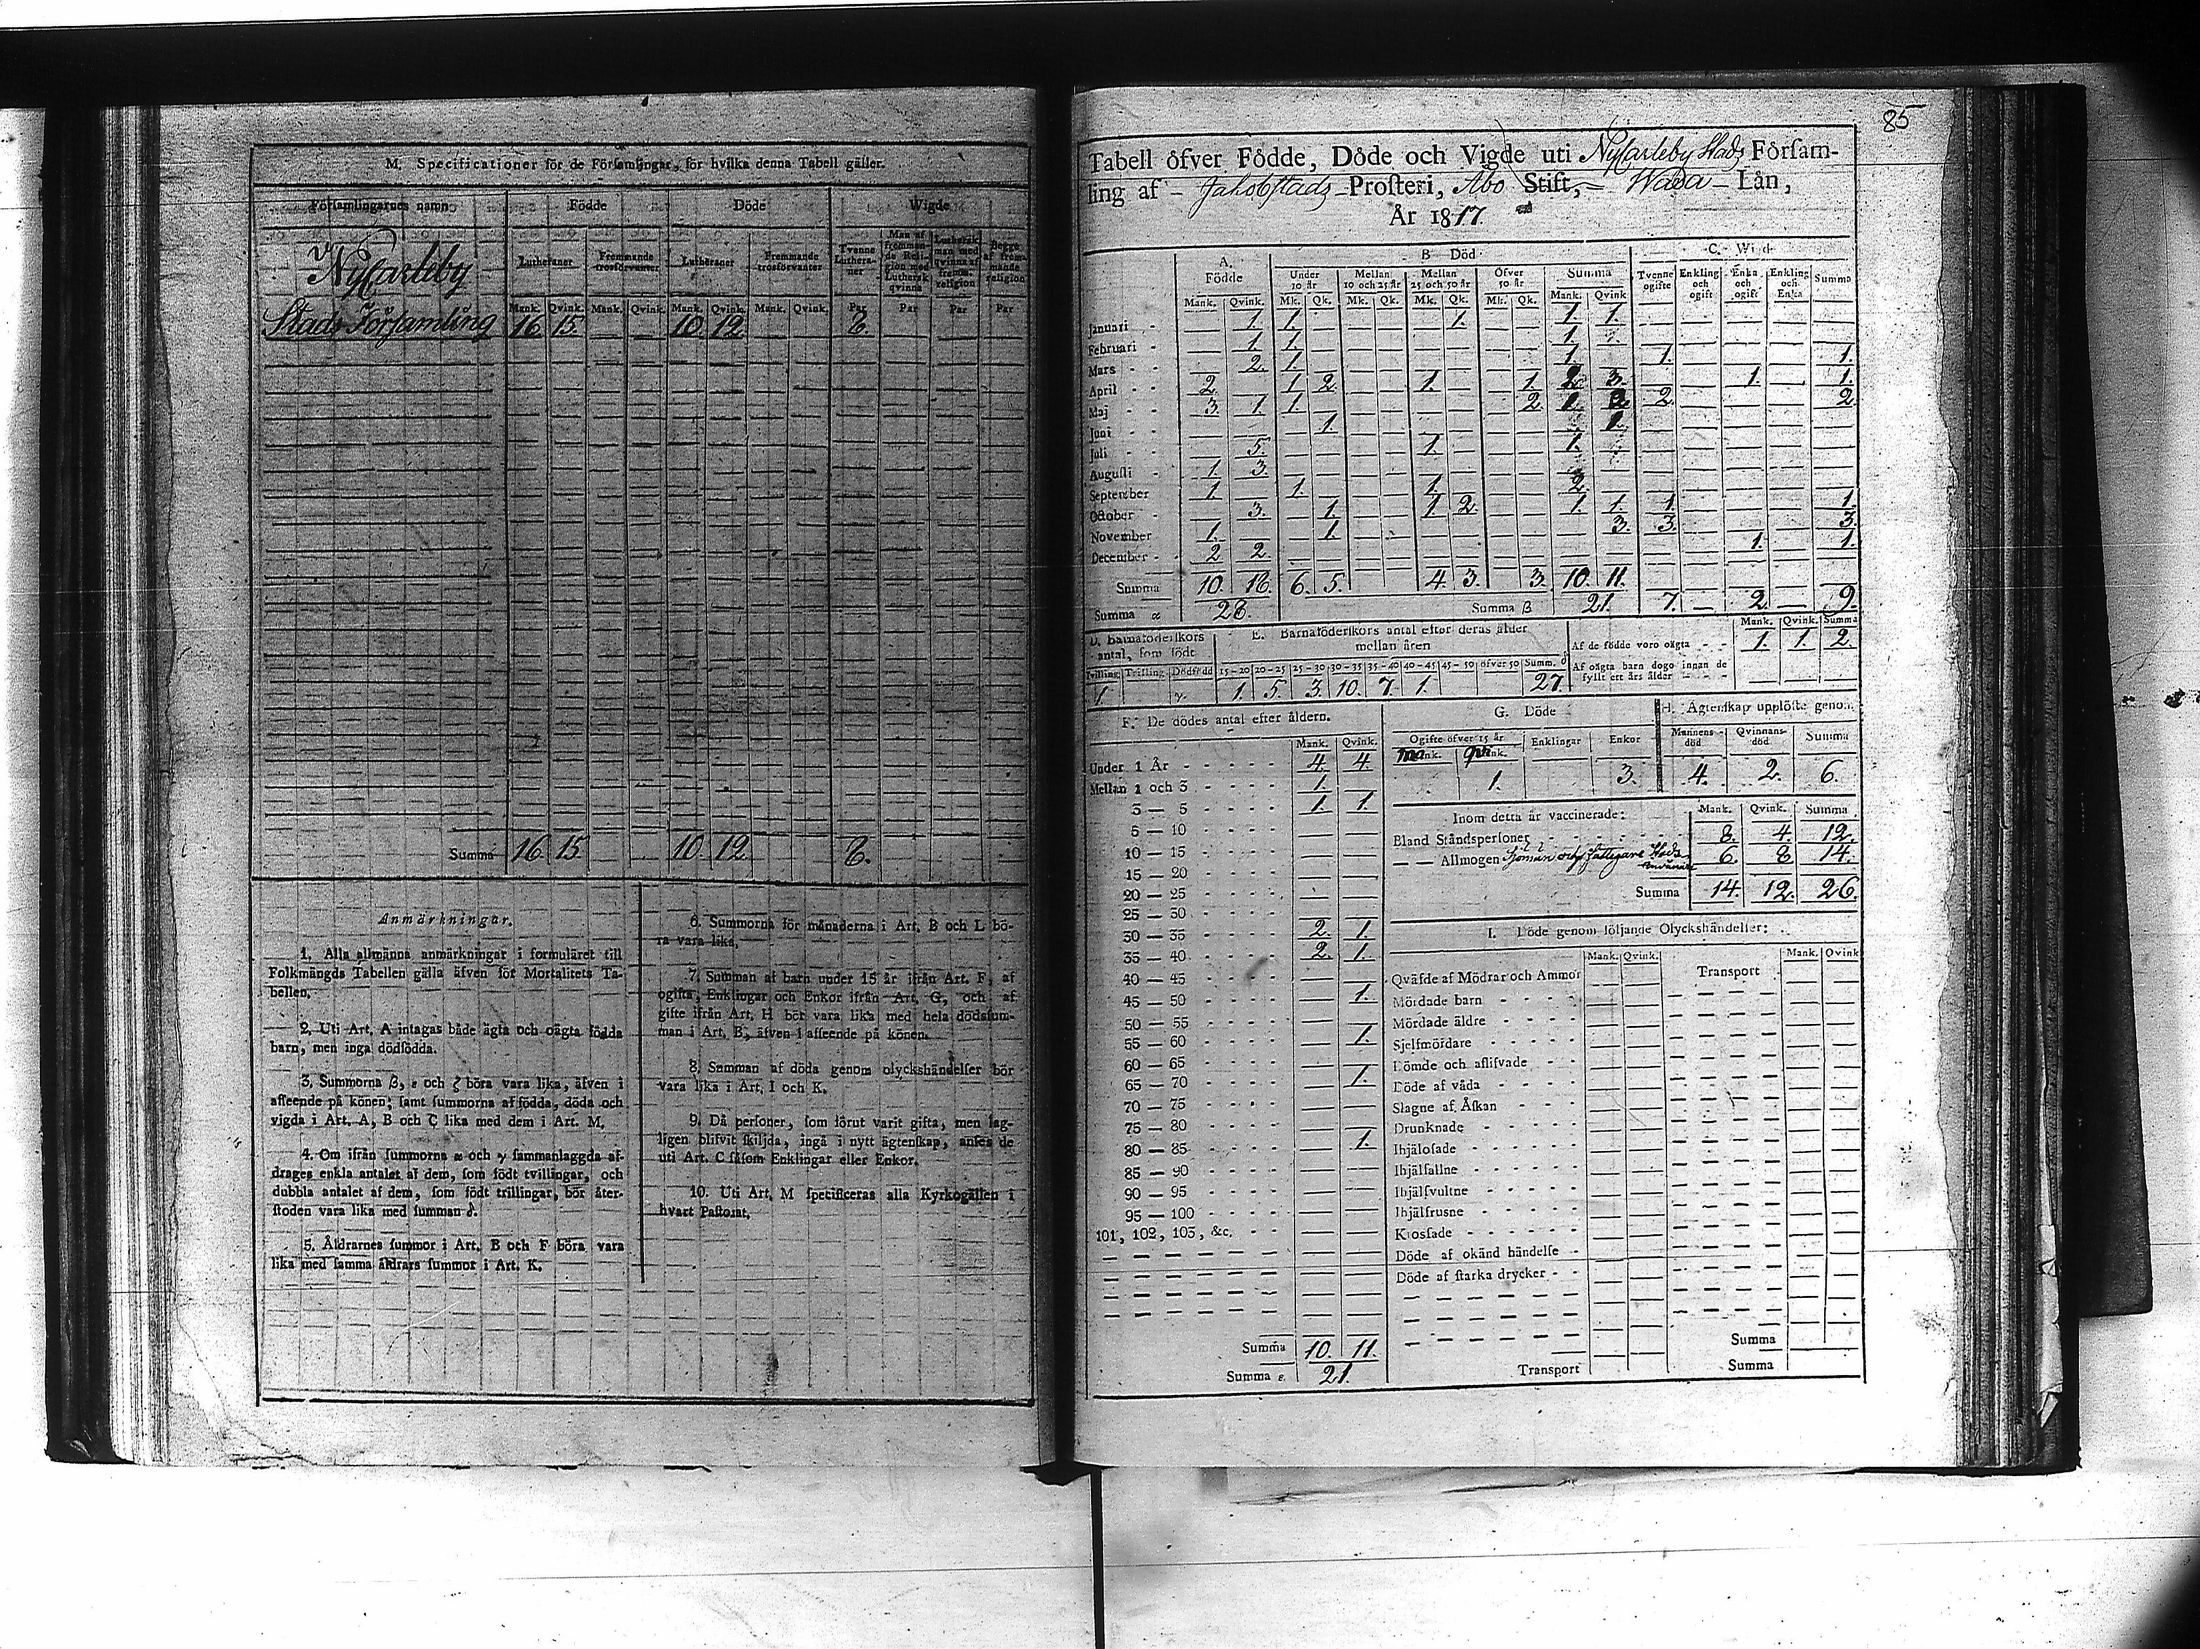 M. Specificationer för de Församlingar, för hvilka denna Tabell gäller.
Församlingarnes namn Födde Döde Wigde
Lutheraner Fremmande trosförvanter Lutheraner Fremmande trosförvanter Tvenne Lutheraner Man af fremmande Religion med Luthersk qvinna Luthersk man med qvinna af fremm. religion Begge af fremmande religion
Mank. Qvink. Mank. Qvink. Mank. Qvink. Mank. Qvink. Par Par Par Par
NyCarleby
Stads Församling 16 15. 10. 12. 8.
Summa 16. 15. 10. 12. 8.
Anmärkningar.
1. Alla allmänna anmärkningar i formuläret till
Folkmängds Tabellen gälla äfven för Mortalitets Ta-
bellen.
2. Uti Art. A intagas både ägta och oägta födda
barn, men inga dödfödda.
3. Summorna ß, ε och ζ böra vara lika, äfven i
affeende på könen; samt summorna af födda, döda och
vigda i Art. A, B och C lika med dem i Art. M.
4. Om ifrån summorna α och γ sammanlaggda af-
drages enkla antalet af dem, som födt tvillingar, och
dubbla antalet af dem, som födt trillingar, bör åter-
stoden vara lika med summan δ.
5. Åldrarnes summor i Art. B och F böra vara
lika med samma åldrars summor i Art. K.
6. Summorna för månaderna i Art. B och L bö-
ra vara lika.
7. Summan af barn under 15 år ifrån Art. F, af
ogifta, Enklingar och Enkor ifrån Art. G, och af
gifte ifrån Art. H bör vara lika med hela dödssum-
man i Art. B, äfven i affeende på könen.
8. Summan af döda genom olyckshändelser bör
vara lika i Art. I och K.
9. Då personer, som förut varit gifta, men lag-
ligen blifvit skiljda, ingå i nytt ägtenskap, anses de
uti Art. C såsom Enklingar eller Enkor.
10. Uti Art. M specificeras alla Kyrkogällen i
hvart Pastorat.
85
Tabell öfver Födde, Döde och Vigde uti NyCarleby Stads Försam-
ling af Jakobstads Prosteri, Abo Stift, Wasa Län,
År 1817.
A. Födde B Död C. Wigd
Under 10 år Mellan 10 och 25 år Mellan 25 och 50 år Öfver 50 år Summa Tvenne ogifte Enkling och ogift Enka och ogift Enkling och Enka Summa
Mank. Qvink. Mk. Qk. Mk. Qk. Mk. Qk. Mk. Qk. Mank. Qvink
Januari 1. 1. 1. 1. 1.
Februari 1. 1. 1.
Mars 2. 1. 1. 1. 1.
April 2. 1. 2. 1. 1. 2. 3. 1. 1.
Maj 3. 1. 1. 2. 1. 2. 2. 2.
Juni 1. 1.
Juli 5. 1. 1.
Augusti 1. 3.
September 1. 1. 1. 2.
October 3. 1. 1. 2. 1. 1. 1. 1.
November 1. 1. 3. 3. 3.
December 2. 2. 1. 1.
Summa 10. 18. 6. 5. 4. 3. 3. 10. 11.
Summa α 28. Summa ß 21. 7. 2. 9.
D. Barnaföderskors antal, som födt
Tvilling Trilling Dödfödd
1.
E. Barnaföderskors antal efter deras ålder mellan åren
15-20 20-25 25-30 30-35 35-40 40-45 45-50 öfver 50 Summ. δ
1. 5. 3. 10. 7. 1. 27.
Mank. Qvink. Summa
Af de födde voro oägta 1. 1. 2.
Af oägta barn dogo innan de
fyllt ett års ålder
F. De dödes antal efter åldern.
Mank. Qvink.
Under 1 År 4. 4.
Mellan 1 och 3 1.
3 — 5 1. 1.
5 — 10
10 — 15
15 — 20
20 — 25
25 — 30
30 — 35 2. 1.
35 — 40 2. 1.
40 — 45
45 — 50 1.
50 — 55
55 — 60 1.
60 — 65
65 — 70 1.
70 — 75
75 — 80
80 — 85 1.
85 — 90
90 — 95
95 — 100
101, 102, 103, &c.
Summa 10. 11.
Summa ε. 21.
G. Döde
Ogifte öfver 15 år Enklingar Enkor
Mank. Qvink.
1. 3.
H. Ägtenskap upplöste genom
Mannens död Qvinnans död Summa
4. 2. 6.
Inom detta år vaccinerade: Mank. Qvink. Summa
Bland Ståndspersoner 8. 4. 12.
— — Allmogen Sjömän och fattigare Stads 6. 8 14.
Summa 14 12. 26.
I. Döde genom följande Olyckshändelser:
Mank. Qvink. Transport Mank. Qvink
Qväfde af Mödrar och Ammor
Mördade barn
Mördade äldre
Sjelfmördare
Dömde och aflifvade
Döde af våda
Slagne af Åskan
Drunknade
Ihjälosade
Ihjälfallne
Ihjälsvultne
Ihjälfrusne
Krossade
Döde af okänd händelse
Döde af starka drycker
Summa
Transport Summa